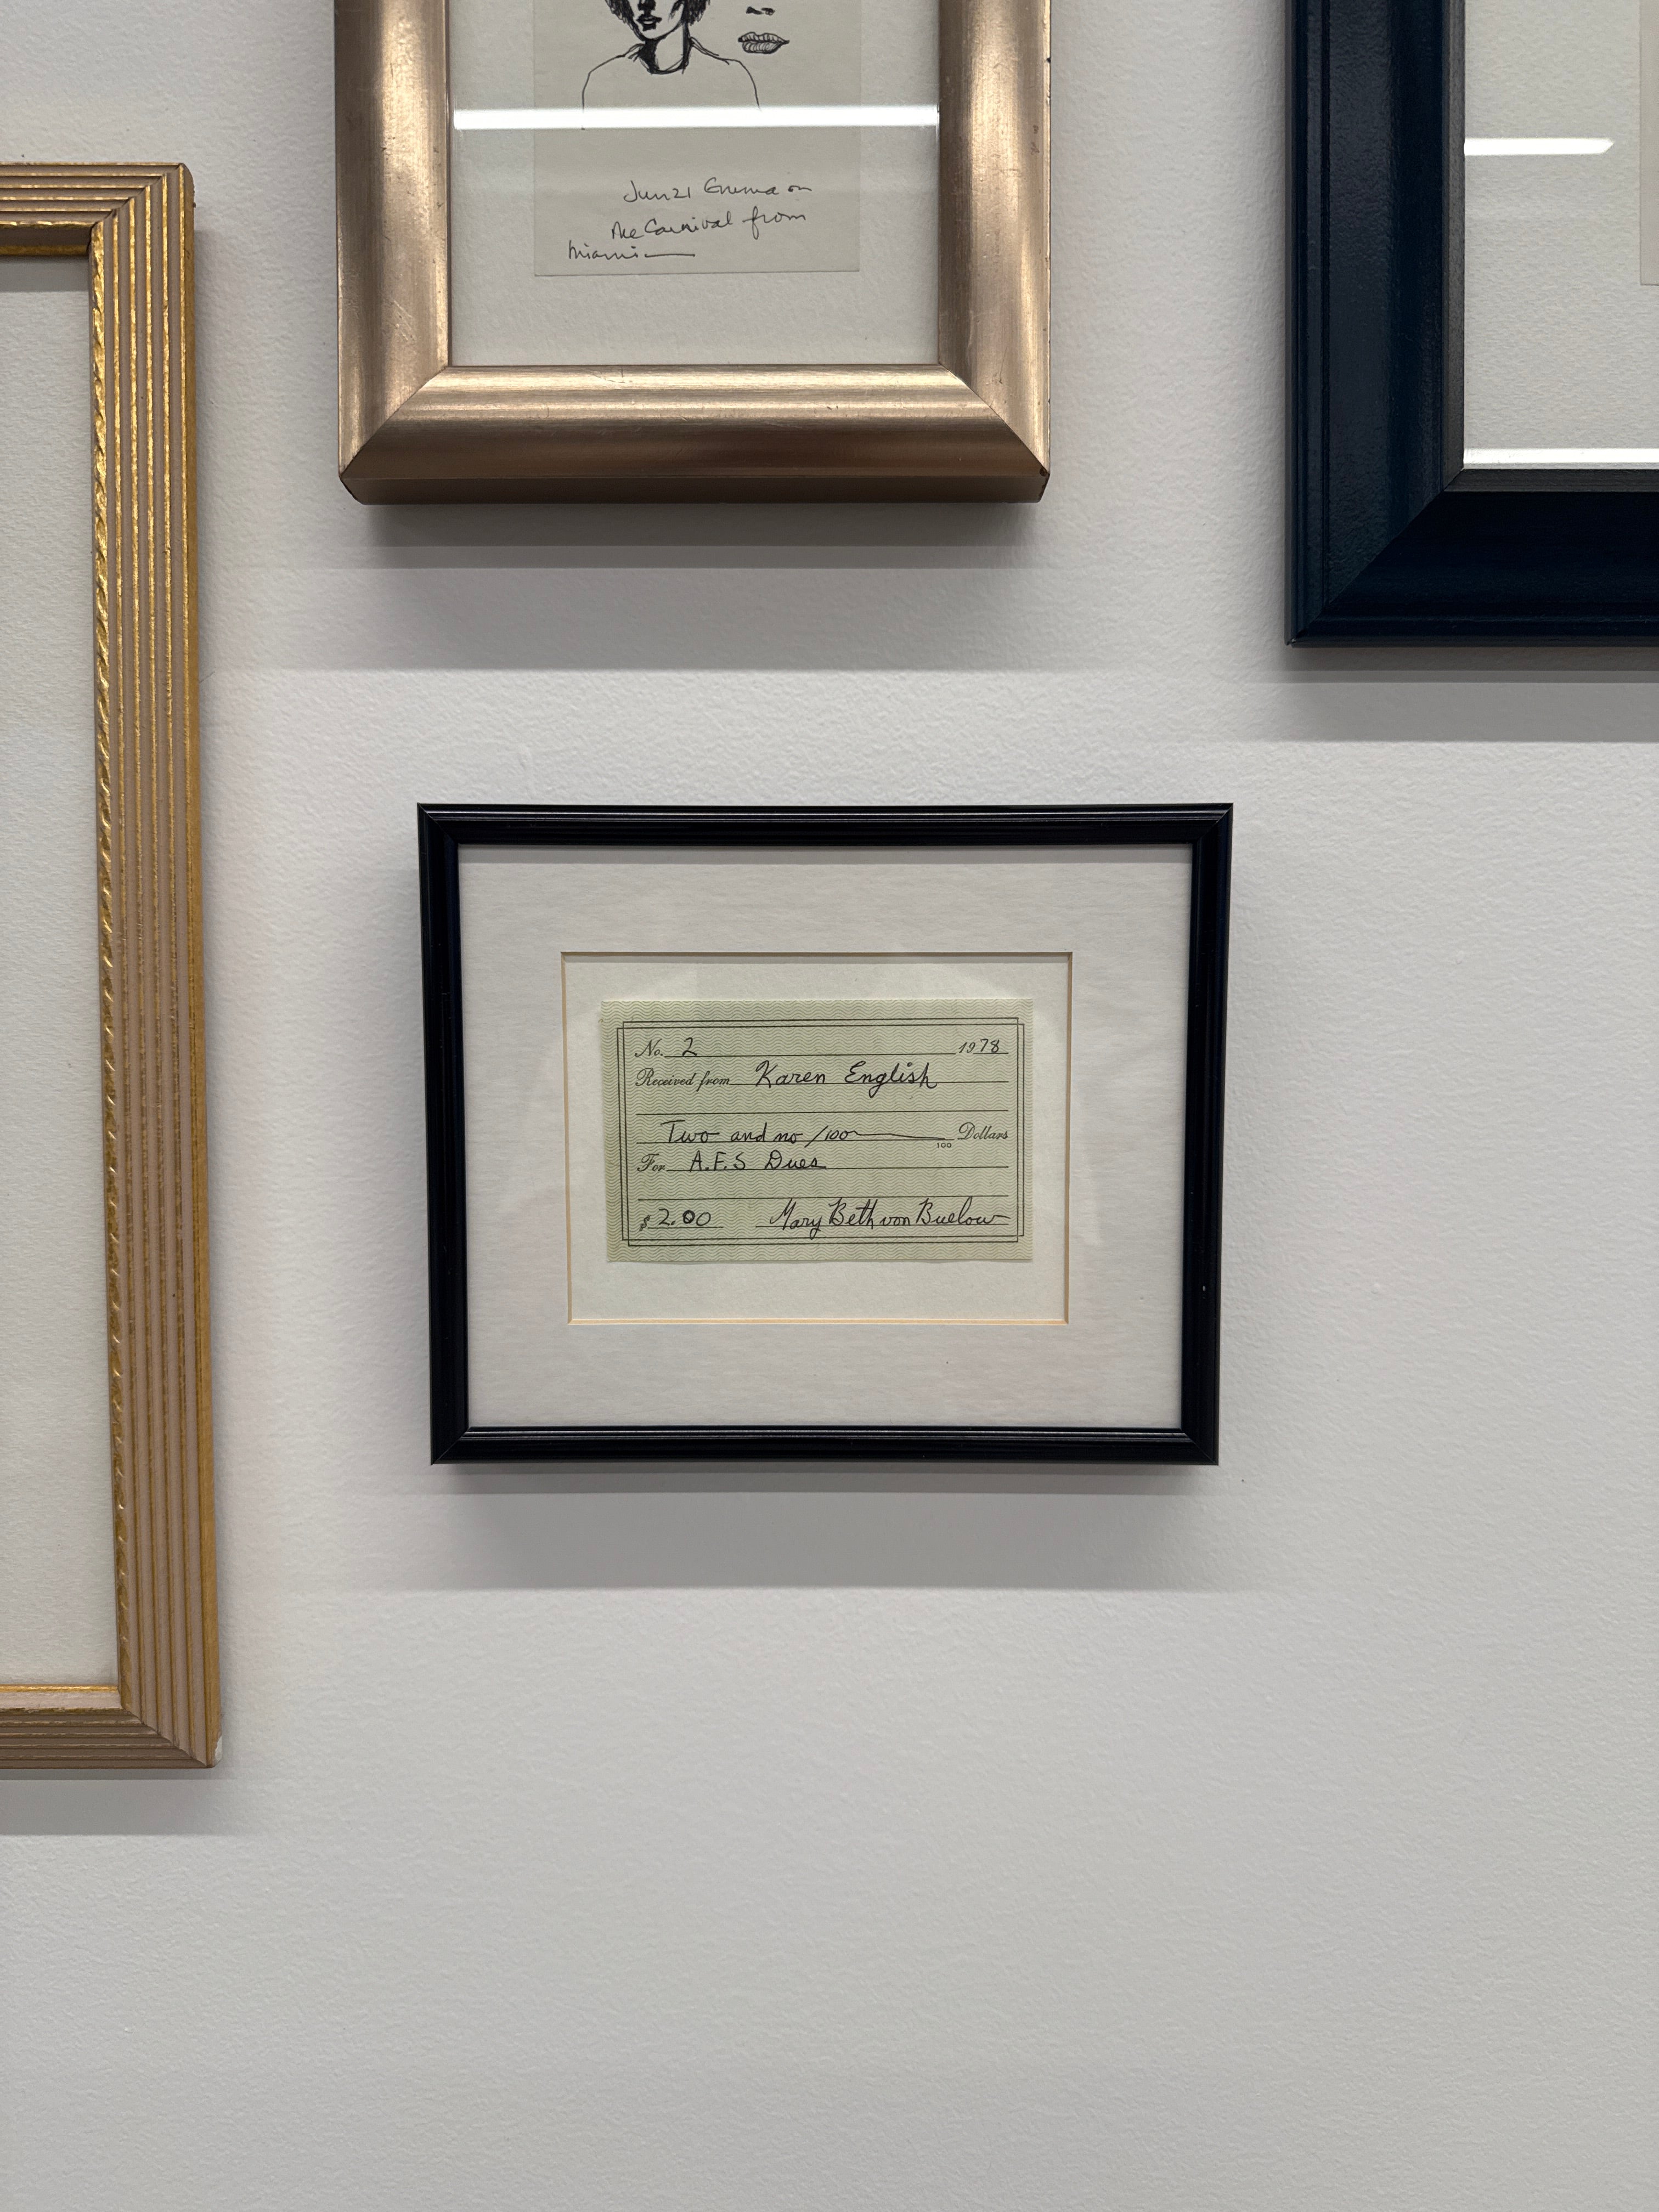 Jun 21 Emma on
the Carnival from
Miami —
No. 2 1978
Received from Karen English
Two and no /100 100 Dollars
For A.F.S Dues
$ 2.00 Mary Beth von Buelow